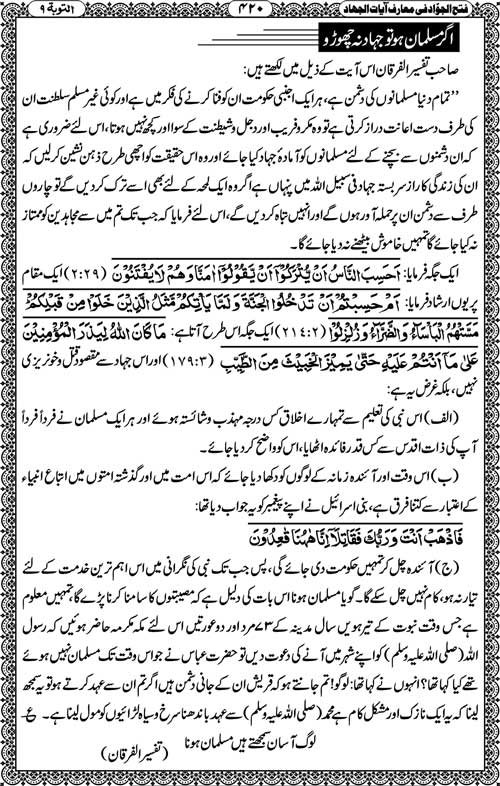 فتح الجوّاد فی معارف آیات الجہاد ۴۲۰ التوبة ۹
اگر مسلمان ہو تو جہاد نہ چھوڑو
صاحب تفسیر الفرقان اس آیت کے ذیل میں لکھتے ہیں:
’’تمام دنیا مسلمانوں کی دشمن ہے، ہر ایک اجنبی حکومت ان کو فنا کرنے کی فکر میں ہے اور کوئی غیر مسلم سلطنت ان
کی طرف دست اعانت دراز کرتی ہے تو وہ مکر و فریب اور دجل و شیطنت کے سوا اور کچھ نہیں ہوتا، اس لئے ضروری ہے
کہ ان دشمنوں سے بچنے کے لئے مسلمانوں کو آمادہ جہاد کیا جائے اور وہ اس حقیقت کو اچھی طرح ذہن نشین کر لیں کہ
ان کی زندگی کا راز سربستہ جہاد فی سبیل اللہ میں پنہاں ہے اگر وہ ایک لمحہ کے لئے بھی اسے ترک کر دیں گے تو چاروں
طرف سے دشمن ان پر حملہ آور ہوں گے اور انہیں تباہ کر دیں گے، اس لئے فرمایا کہ جب تک تم میں سے مجاہدین کو ممتاز
نہ کیا جائے گا تمہیں خاموش بیٹھنے نہ دیا جائے گا۔
ایک جگہ فرمایا: اَحَسِبَ النَّاسُ اَنْ یُّتْرَکُوْۤا اَنْ یَّقُوْلُوْۤا اٰمَنَّا وَہُمْ لَا یُفْتَنُوْنَ (۲:۲۹) ایک مقام
پر یوں ارشاد فرمایا: اَمْ حَسِبْتُمْ اَنْ تَدْخُلُوا الْجَنَّةَ وَلَمَّا یَاْتِکُمْ مَّثَلُ الَّذِیْنَ خَلَوْا مِنْ قَبْلِکُمْ
مَسَّتْہُمُ الْبَاْسَآءُ وَالضَّرَّآءُ وَزُلْزِلُوْا (۲۱۴:۲) ایک جگہ اس طرح آتا ہے: مَا کَانَ اللّٰہُ لِیَذَرَ الْمُؤْمِنِیْنَ
عَلٰی مَاۤ اَنْتُمْ عَلَیْہِ حَتّٰی یَمِیْزَ الْخَبِیْثَ مِنَ الطَّیِّبِ (۱۷۹:۳) اور اس جہاد سے مقصود قتل و خونریزی
نہیں، بلکہ غرض یہ ہے:
(الف) اس نبی کی تعلیم سے تمہارے اخلاق کس درجہ مہذب و شائستہ ہوئے اور ہر ایک مسلمان نے فرداً فرداً
آپ کی ذات اقدس سے کس قدر فائدہ اٹھایا، اس کو واضح کر دیا جائے۔
(ب) اس وقت اور آئندہ زمانہ کے لوگوں کو دکھا دیا جائے کہ اس امت میں اور گذشتہ امتوں میں اتباع انبیاء
کے اعتبار سے کتنا فرق ہے، بنی اسرائیل نے اپنے پیغمبر کو یہ جواب دیا تھا:
فَاذْہَبْ اَنْتَ وَرَبُّکَ فَقَاتِلَاۤ اِنَّا ہٰہُنَا قٰعِدُوْنَ
(ج) آئندہ چل کر تمہیں حکومت دی جائے گی، پس جب تک نبی کی نگرانی میں اس اہم ترین خدمت کے لئے
تیار نہ ہو، کام نہیں چل سکے گا۔ گویا مسلمان ہونا اس بات کی دلیل ہے کہ مصیبتوں کا سامنا کرنا پڑے گا، تمہیں معلوم
ہے جس وقت نبوت کے تیرہویں سال مدینہ کے ۷۳ مرد اور دو عورتیں اس لئے مکہ مکرمہ حاضر ہوئیں کہ رسول
اللہ (صلی اللہ علیہ وسلم) کو اپنے شہر میں آنے کی دعوت دیں تو حضرت عباس نے جو اس وقت تک مسلمان نہیں ہوئے
تھے کیا کہا تھا؟ انہوں نے کہا تھا: لوگو! تم جانتے ہو کہ قریش ان کے جانی دشمن ہیں اگر تم ان سے عہد کرتے ہو تو یہ سمجھ
لینا کہ یہ ایک نازک اور مشکل کام ہے محمد (صلی اللہ علیہ وسلم) سے عہد باندھنا سرخ و سیاہ لڑائیوں کو مول لینا ہے۔ ع
لوگ آسان سمجھتے ہیں مسلمان ہونا
(تفسیر الفرقان)